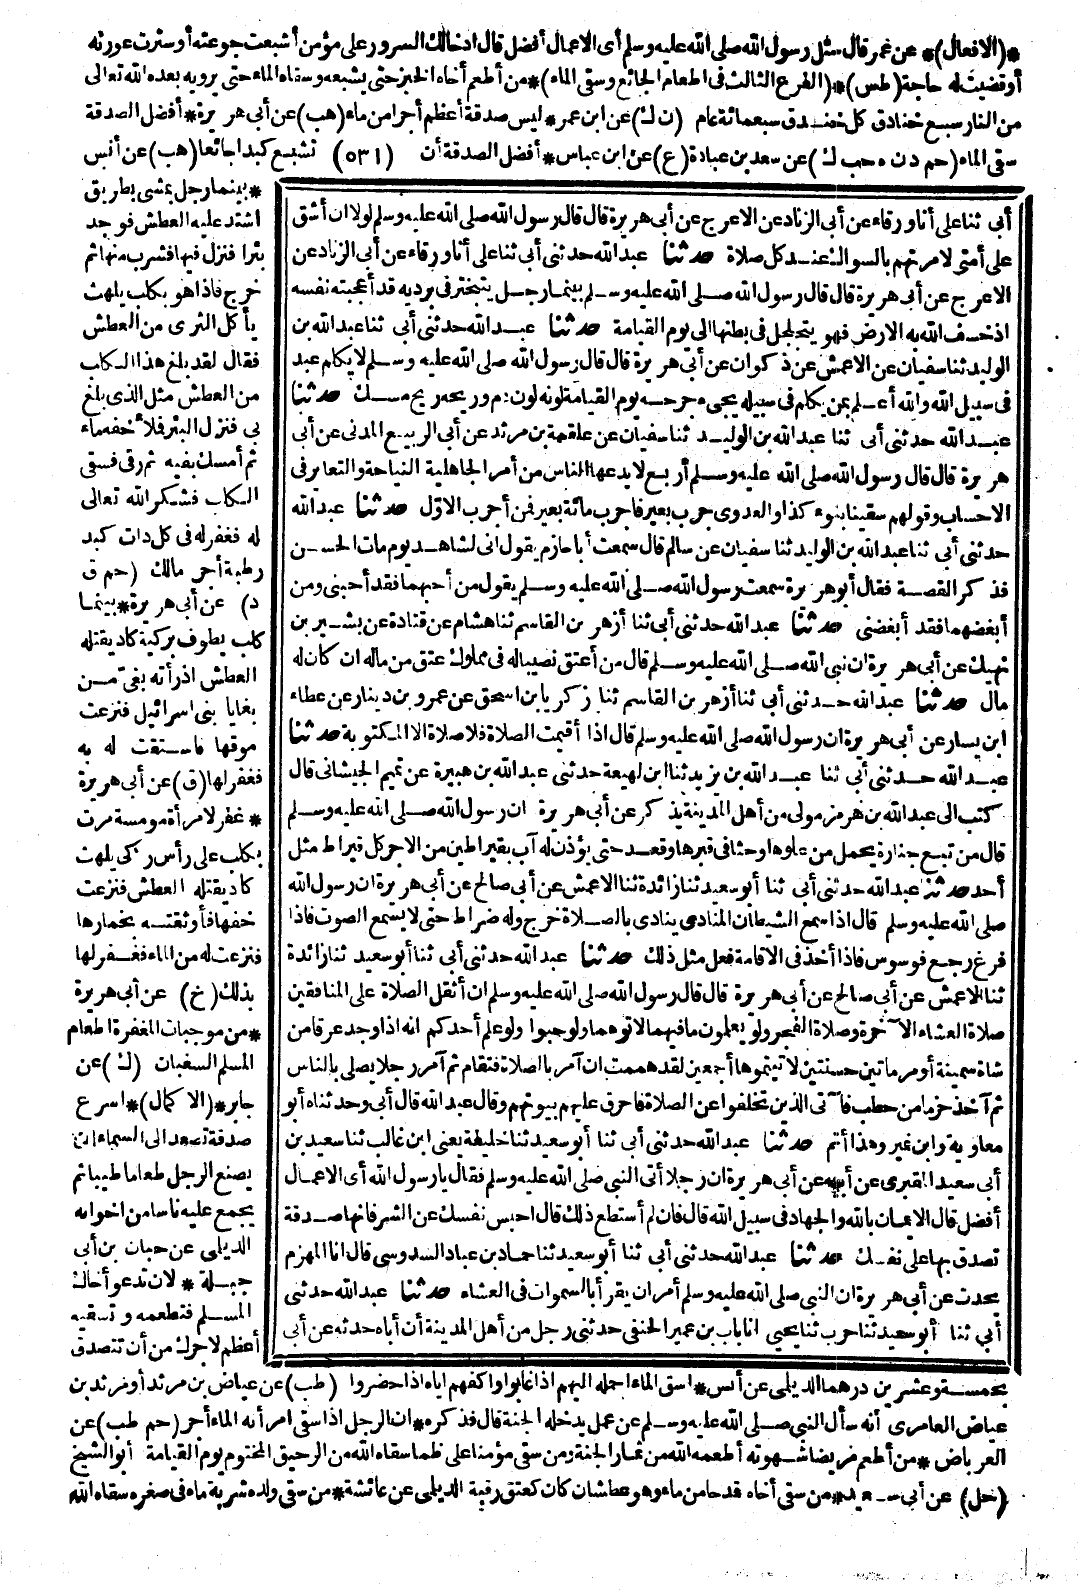 *(الافعال)* عن عمر قال سئل رسول الله صلى الله عليه وسلم أى الاعمال أفضل قال ادخالك السرور على مؤمن أشبعت جوعته أو سترت عورته
أو قضيت له حاجة (طس)*(الفرع الثالث فى اطعام الجائع وسقى الماء)* من أطعم أخاه الخبز حتى يشبعه وسقاه الماء حتى يرويه بعده الله تعالى
من النار سبع خنادق كل خندق سبعمائة عام (ن ك) عن ابن عمر* ليس صدقة أعظم أجرا من ماء (هب) عن أبى هريرة* أفضل الصدقة
سقى الماء (حم د ن ه حب ك) عن سعد بن عبادة (ع) عن ابن عباس* أفضل الصدقة أن (٥٣١) تشبع كبدا جائعا (هب) عن أنس
أبى ثنا على أنا ورقاء عن أبى الزناد عن الاعرج عن أبى هريرة قال قال رسول الله صلى الله عليه وسلم لولا ان أشق
على أمتى لامرتهم بالسواك عند كل صلاة حدثنا عبد الله حدثنى أبى ثنا على أنا ورقاء عن أبى الزناد عن
الاعرج عن أبى هريرة قال قال رسول الله صلى الله عليه وسلم بينما رجل يتبختر فى برديه قد أعجبته نفسه
اذ خسف الله به الارض فهو يتجلجل فى بطنها الى يوم القيامة حدثنا عبد الله حدثنى أبى ثنا عبد الله بن
الوليد ثنا سفيان عن الاعمش عن ذكوان عن أبى هريرة قال قال رسول الله صلى الله عليه وسلم لا يكلم عبد
فى سبيل الله والله أعلم بمن يكلم فى سبيله يجىء جرحه يوم القيامة لونه لون دم وريحه ريح مسك حدثنا
عبد الله حدثنى أبى ثنا عبد الله بن الوليد ثنا سفيان عن علقمة بن مرثد عن أبى الربيع المدنى عن أبى
هريرة قال قال رسول الله صلى الله عليه وسلم أربع لا يدعها الناس من أمر الجاهلية النياحة والتعاير فى
الاحساب وقولهم سقينا بنوء كذا والعدوى جرب بعير فاجرب مائة بعير فمن أجرب الاول حدثنا عبد الله
حدثنى أبى ثنا عبد الله بن الوليد ثنا سفيان عن سالم قال سمعت أبا حازم يقول انى لشاهد يوم مات الحسن
فذكر القصة فقال أبو هريرة سمعت رسول الله صلى الله عليه وسلم يقول من أحبهما فقد أحبنى ومن
أبغضهما فقد أبغضنى حدثنا عبد الله حدثنى أبى ثنا أزهر بن القاسم ثنا هشام عن قتادة عن بشير بن
نهيك عن أبى هريرة ان نبى الله صلى الله عليه وسلم قال من أعتق نصيبا له فى مملوك عتق من ماله ان كان له
مال حدثنا عبد الله حدثنى أبى ثنا أزهر بن القاسم ثنا زكريا بن اسحق عن عمرو بن دينار عن عطاء
ابن يسار عن أبى هريرة ان رسول الله صلى الله عليه وسلم قال اذا أقيمت الصلاة فلا صلاة الا المكتوبة حدثنا
عبد الله حدثنى أبى ثنا عبد الله بن يزيد ثنا ابن لهيعة حدثنى عبد الله بن هبيرة عن تميم الجيشانى قال
كتب الى عبد الله بن هرمز مولى من أهل المدينة يذكر عن أبى هريرة ان رسول الله صلى الله عليه وسلم
قال من تبع جنازة يحمل من علوها وحثا فى قبرها وقعد حتى يؤذن له آب بقيراطين من الاجر كل قيراط مثل
أحد حدثنا عبد الله حدثنى أبى ثنا أبو سعيد ثنا زائدة ثنا الاعمش عن أبى صالح عن أبى هريرة ان رسول الله
صلى الله عليه وسلم قال اذا سمع الشيطان المنادى ينادى بالصلاة خرج وله ضراط حتى لا يسمع الصوت فاذا
فرغ رجع فوسوس فاذا أخذ فى الاقامة فعل مثل ذلك حدثنا عبد الله حدثنى أبى ثنا أبو سعيد ثنا زائدة
ثنا الاعمش عن أبى صالح عن أبى هريرة قال قال رسول الله صلى الله عليه وسلم ان أثقل الصلاة على المنافقين
صلاة العشاء الآخرة وصلاة الفجر ولو يعلمون ما فيهما لاتوهما ولو حبوا ولو علم أحدكم انه اذا وجد عرقا من
شاة سمينة أو مرماتين حسنتين لاتيتموها أجمعين لقد هممت ان آمر بالصلاة فتقام ثم آمر رجلا يصلى بالناس
ثم آخذ حزما من حطب فآتى الذين تخلفوا عن الصلاة فاحرق عليهم بيوتهم وقال عبد الله قال أبى وحدثناه أبو
معاوية وابن نمير وهذا أتم حدثنا عبد الله حدثنى أبى ثنا أبو سعيد ثنا خليفة يعنى ابن غالب ثنا سعيد بن
أبى سعيد المقبرى عن أبيه عن أبى هريرة ان رجلا أتى النبى صلى الله عليه وسلم فقال يا رسول الله أى الاعمال
أفضل قال الايمان بالله والجهاد فى سبيل الله قال فان لم أستطع ذلك قال احبس نفسك عن الشر فانها صدقة
تصدق بها على نفسك حدثنا عبد الله حدثنى أبى ثنا أبو سعيد ثنا حماد بن عباد السدوسى قال انا المهزم
يحدث عن أبى هريرة ان النبى صلى الله عليه وسلم أمر ان يقرأ بالسموات فى العشاء حدثنا عبد الله حدثنى
أبى ثنا أبو سعيد ثنا حرب ثنا يحيى انا باب بن عمير الحنفى حدثنى رجل من أهل المدينة أن أباه حدثه عن أبى
* بينما رجل يمشى بطريق
اشتد عليه العطش فوجد
بئرا فنزل فيها فشرب منها ثم
خرج فاذا هو بكلب يلهث
يأكل الثرى من العطش
فقال لقد بلغ هذا الكلب
من العطش مثل الذى بلغ
بى فنزل البئر فملأ خفه ماء
ثم أمسك بفيه ثم رقى فسقى
الكلب فشكر الله تعالى
له فغفر له فى كل ذات كبد
رطبة أجر مالك (حم ق
د) عن أبى هريرة* بينما
كلب يطوف بركية كاد يقتله
العطش اذ رأته بغى من
بغايا بنى اسرائيل فنزعت
موقها فاستقت له به
فغفر لها (ق) عن أبى هريرة
* غفر لامرأة مومسة مرت
بكلب على رأس ركى يلهث
كاد يقتله العطش فنزعت
خفها فأوثقته بخمارها
فنزعت له من الماء فغفر لها
بذلك (خ) عن أبى هريرة
* من موجبات المغفرة اطعام
المسلم السغبان (ك) عن
جابر*(الاكمال)* اسرع
صدقة تصعد الى السماء ان
يصنع الرجل طعاما طيبا ثم
يجمع عليه ناسا من اخوانه
الديلى عن حبان بن أبى
جبلة * لان تدعو أخاك
المسلم فتطعمه وتسقيه
أعظم لاجرك من أن تتصدق
بخمسة وعشرين درهما الديلى عن أنس* اسق الماء احمله اليهم اذا غابوا واكفهم اياه اذا حضروا (طب) عن عياض بن مرثد أو مرثد بن
عياض العامرى أنه سأل النبى صلى الله عليه وسلم عن عمل يدخله الجنة قال فذكره* ان الرجل اذا سقى امرأته الماء أجر (حم طب) عن
العرباض * من أطعم مريضا شهوته أطعمه الله من ثمار الجنة ومن سقى مؤمنا على ظما سقاه الله من الرحيق المختوم يوم القيامة أبو الشيخ
(حل) عن أبى سعيد* من سقى أخاه قدحا من ماء وهو عطشان كان كعتق رقبة الديلى عن عائشة* من سقى ولده شربة ماء فى صغره سقاه الله